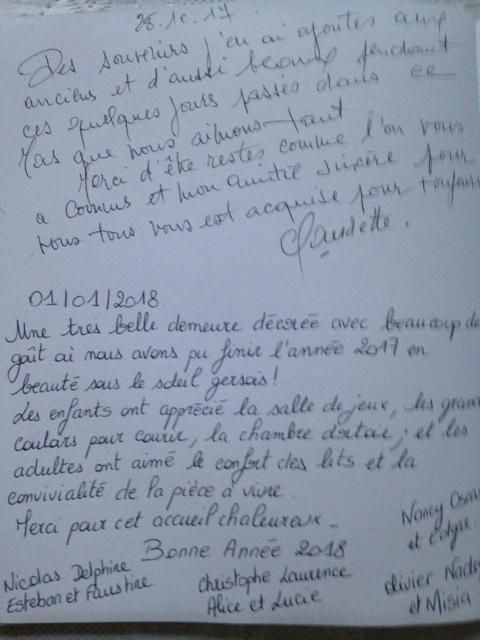 28.10.17.
Des souvenirs j'en ai ajoutés aux
anciens et d'aussi beaux pendant
ces quelques jours passés dans ce
Mas que nous aimons tant
Merci d'être restés comme l'on vous
a connus et mon amitié sincère pour
vous tous vous est acquise pour toujours
Claudette.
01/01/2018.
Une très belle demeure décorée avec beaucoup de
goût où nous avons pu finir l'année 2017 en
beauté sous le soleil gersois!
Les enfants ont apprécié la salle de jeux, les grands
couloirs pour courir, la chambre dortoir; et les
adultes ont aimé le confort des lits et la
convivialité de la pièce à vivre.
Merci pour cet accueil chaleureux_
Bonne Année 2018
Nicolas Delphine
Esteban et Faustine
Christophe Laurence
Alice et Lucie
Nancy Oscar
et Edgar
Olivier
et Misia